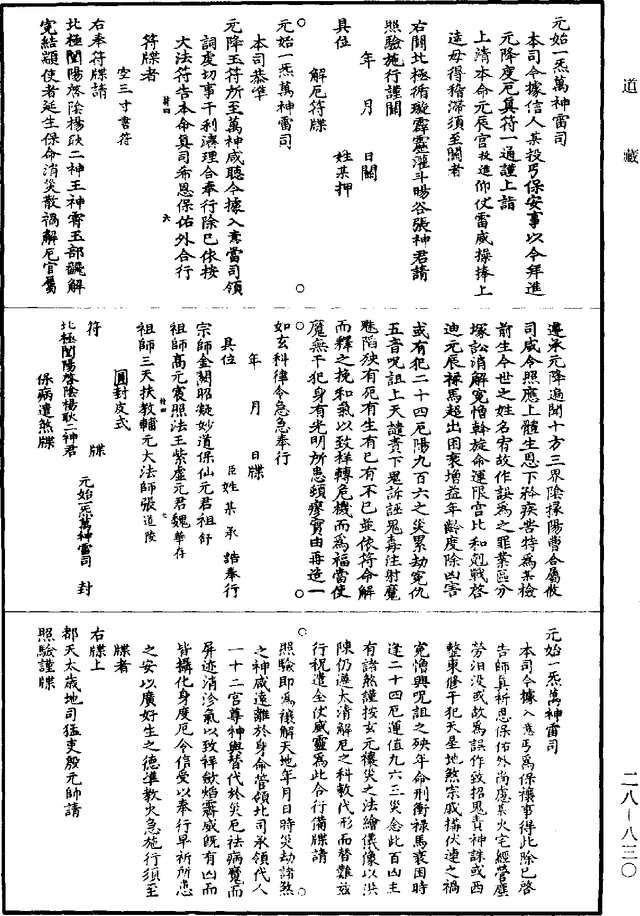 道藏
元始一炁萬神雷司
本司令據信人某投丐保安事以今拜進
元降度厄真符一通謹上詣
上清本命元辰官故造仰仗雷威操捧上
達毋得稽滯須至關者
右關北極循璇霹靂灌斗暘谷張神君請
照驗施行謹關
年 月 日關
具位 姓某押
解厄符牒
元始一炁萬神雷司
本司恭準
元降玉符所至萬神咸聽今據入意當司領
詞虔切事干利濟理合奉行除已依按
大法符告本命真司希恩保佑外合行
符牒者
空三寸書符
右奉符牒請
北極閶陽啓陰楊耿二神王神霄玉部䶬解
寃結願使者延生保命消災散禍解厄官屬
遵承元降遍聞十方三界陰掾陽曹合屬攸
司咸令照應上體生恩下矜疾苦特爲某檢
前生今世之姓名宥故作誤爲之罪業區分
塚訟消解寃憎斡旋命運限宫比和剋戰啓
迪元辰祿馬超出困衰增益年齡度除凶害
或有犯二十四厄陽九百六之災累劫寃仇
五音呪詛上天譴責下鬼訴誣鬼毒注射魔
魅陷殃有死有生有已有不已並依符命解
而釋之挽和氣以致祥轉危機而爲福當使
魔無干犯身有光明所患頭瘳實由再造一
如玄科律令急急奉行
年 月 日牒
具位 臣姓某承誥奉行
宗師金闕昭凝妙道保仙元君祖舒
祖師高元宸照法王紫虛元君魏華存
祖師三天扶教輔元大法師張道陵
圓封皮式
符 牒
北極閶陽啓陰楊耿二神君 元始一炁萬神雷司 封
保病遣煞牒
元始一炁萬神雷司
本司今據入意丐爲保禳事得此除已啓
告師真祈恩保佑外尚慮某火宅經營塵
勞汨没或故爲誤作致招鬼責神誅或西
整東修干犯天星地煞宗戚構伏連之禍
寃憎興呪詛之殃年命刑衝祿馬衰困時
逢二十四厄運值九六三災念此百凶主
有諸煞謹按玄元禳災之法繪儀像以洪
陳仍遵太清解厄之科敷代形而替難茲
行祝遣全仗威靈爲此合行備牒請
照驗即爲禳解天地年月日時災劫諸煞
之神咸遠離於身命管領北司承領代人
一十二宫尊神與替代於災厄祛病魔而
屏迹消沴氣以致祥歛焰霽威既有凶而
皆攝化身度厄令信受以奉行早祈所患
之安以廣好生之德準教火急施行須至
牒者
右牒上
都天太歲地司猛吏殷元帥請
照驗謹牒
二八—八三〇